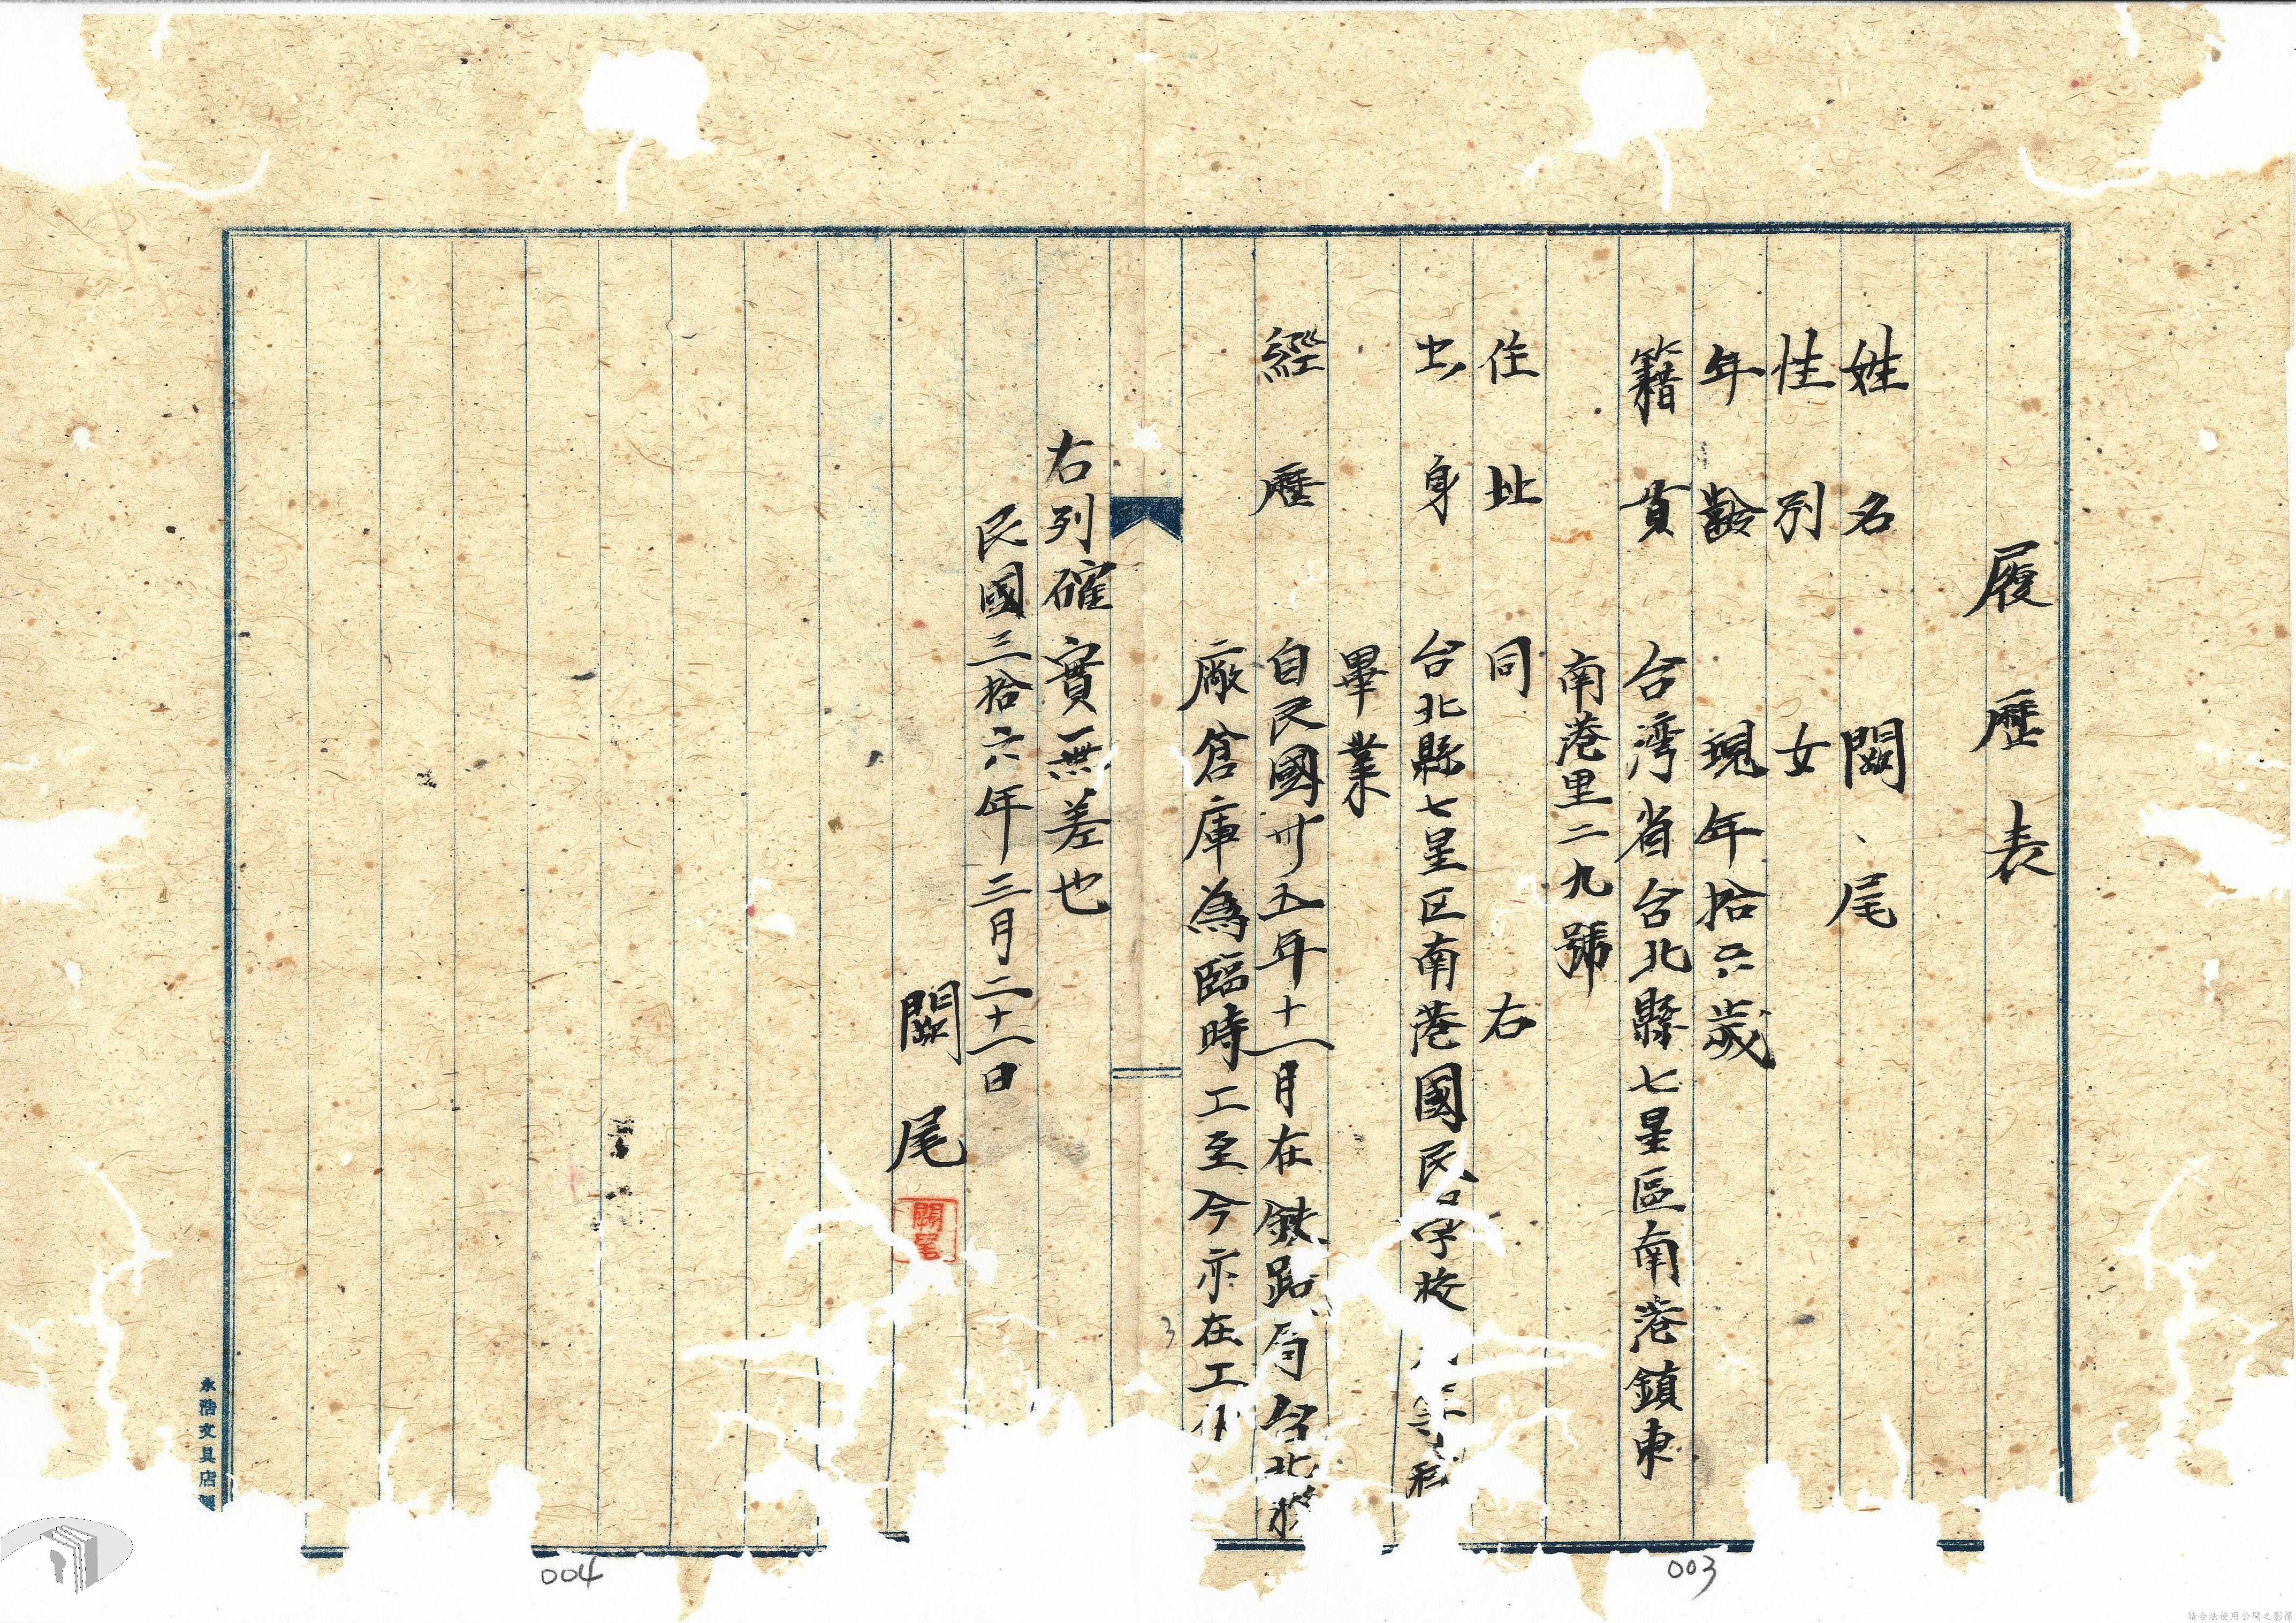 履歷表
姓名 闕、尾
性別 女
年齡 現年拾六歲
籍貫 台湾省台北縣七星區南港鎮東
南港里二九號
住址 同右
出身 台北縣七星区南港國民学校
畢業
經歷 自民國卅五年十一月在鉄路局台北
廠倉庫為臨時工至今亦在工作
右列確實無差也
民國三拾六年三月二十一日
闕尾
闕尾
永浩文具店製
3
004
003
請合法使用公開之影像